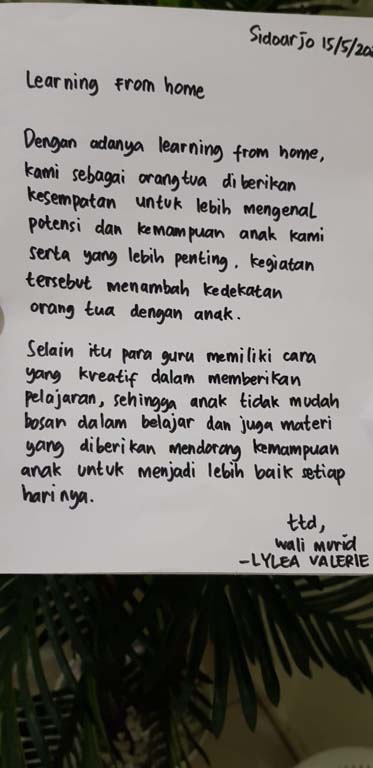 Sidoarjo 15/5/202
Learning From home
Dengan adanya learning from home,
kami sebagai orangtua di berikan
kesempatan untuk lebih mengenal
potensi dan kemampuan anak kami
serta yang lebih penting, kegiatan
tersebut menambah kedekatan
orang tua dengan anak.
Selain itu para guru memiliki cara
yang kreatif dalam memberikan
pelajaran, sehingga anak tidak mudah
bosan dalam belajar dan juga materi
yang diberikan mendorong kemampuan
anak untuk menjadi lebih baik setiap
hari nya.
ttd,
wali murid
-LYLEA VALERIE